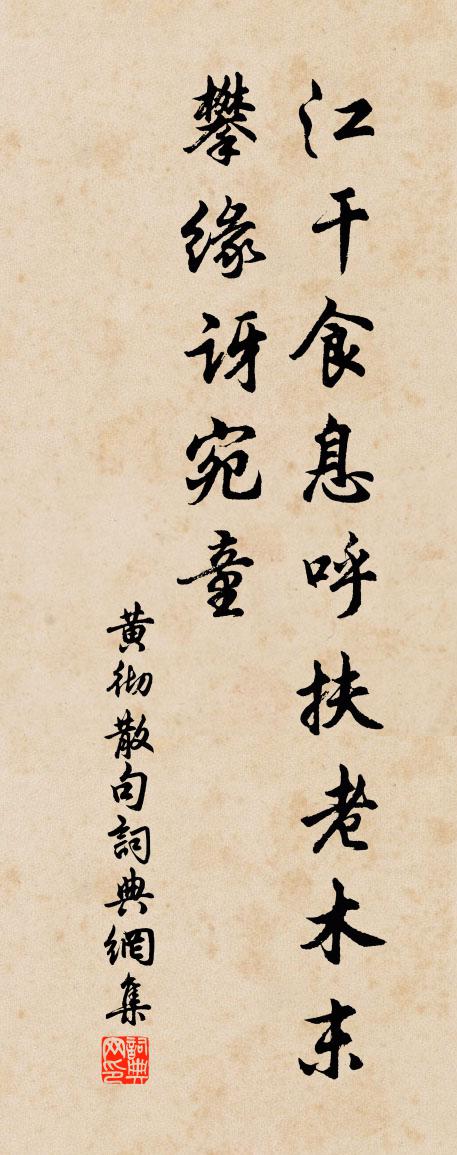 江干食息呼扶老木末
攀缘訝宛童
黄彻散句詞典網集
詞典网印